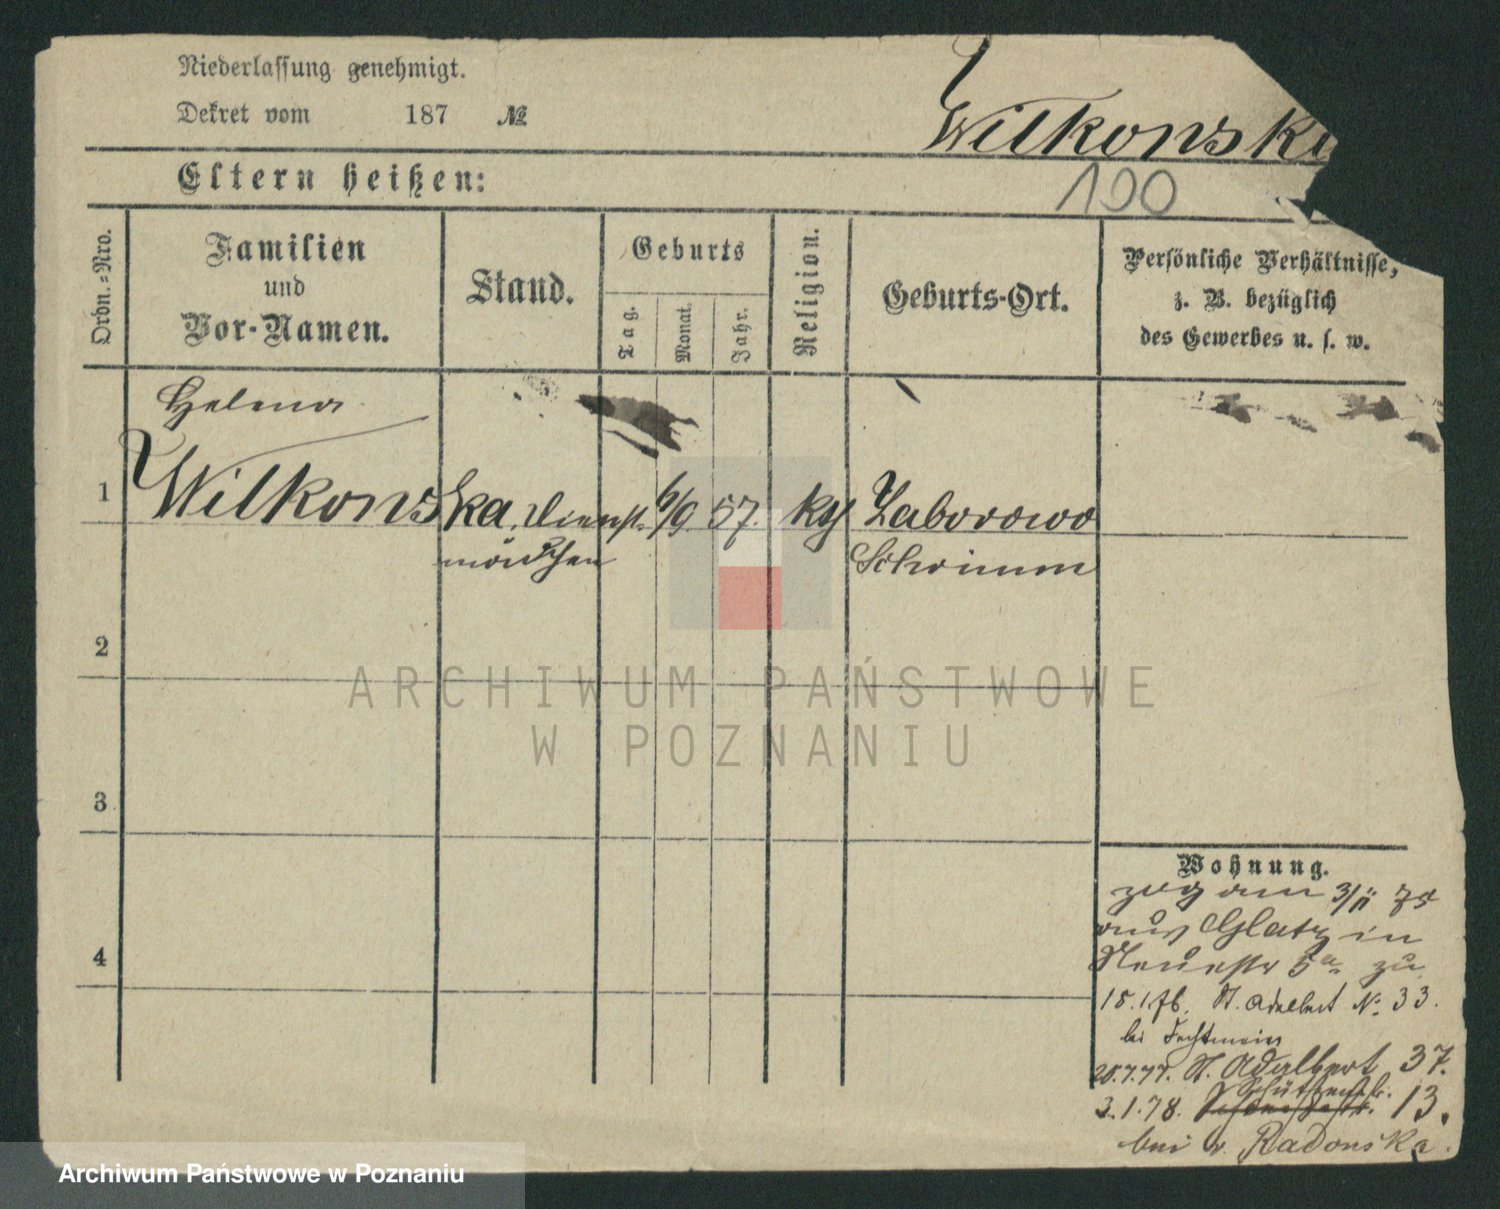 Niederlassung genehmigt.
Dekret vom 187 №
Wilkonski
Eltern heißen:
100
Ordn.-Nro.
Familien
und
Vor-Namen.
Stand.
Geburts
Tag.
Monat.
Jahr.
Religion.
Geburts-Ort.
Persönliche Verhältnisse,
z. B. bezüglich
des Gewerbes u. s. w.
Helena
1 Wilkonska, Dienst- 6/9. 57. kth Zaborowo
mädchen Schrimm
2
3
4
Wohnung.
zog am 3/11 75
aus Glatz in
Neuestr 5a zu
18.1.76. St. Adalbert No. 33.
bei
20.7.77. St. Adalbert 37.
Schützenstr.
3.1.78. 13.
bei v Radonska.
ARCHIWUM PAŃSTWOWE
W POZNANIU
Archiwum Państwowe w Poznaniu